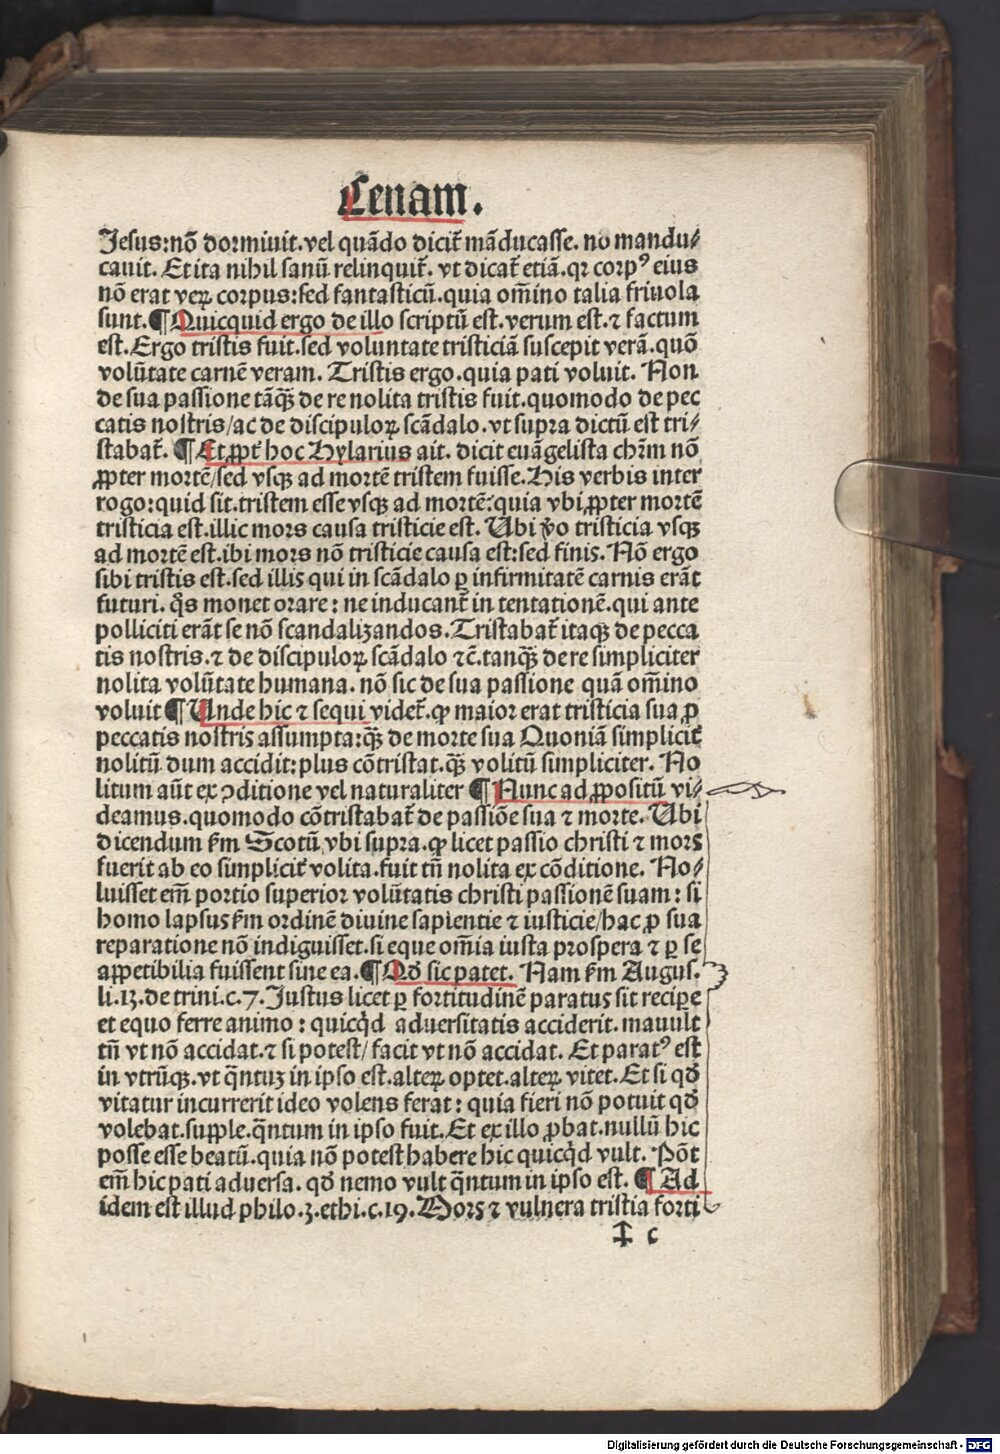 Cenam.
Jesus:nō dormiuit.vel quādo dicit̄ māducasse. no mandu⸗
cauit. Et ita nihil sanū relinquit̄. vt dicat̄ etiā. qꝛ corpꝰ eius
nō erat veꝝ corpus:sed fantasticū.quia om̄ino talia friuola
sunt.¶Quicquid ergo de illo scriptū est.verum est.⁊ factum
est.Ergo tristis fuit.sed voluntate tristiciā suscepit verā.quō
volūtate carnē veram. Tristis ergo.quia pati voluit. Non
de sua passione tāq̄ȝ de re nolita tristis fuit.quomodo de pec
catis nostris/ac de discipuloꝝ scādalo.vt supra dictū est tri⸗
stabat̄. ¶Et ꝓpt̄ hoc Hylarius ait. dicit euāgelista chr̄m nō
ꝓpter mortē/sed vsqȝ ad mortē tristem fuisse.His verbis inter
rogo:quid sit.tristem esse vsqȝ ad mortē:quia vbi ꝓpter mortē
tristicia est.illic mors causa tristicie est. Ubi v̄o tristicia vsqȝ
ad mortē est.ibi mors nō tristicie causa est:sed finis. Nō ergo
sibi tristis est.sed illis qui in scādalo ꝑ infirmitatē carnis erāt
futuri. q̄s monet orare: ne inducant̄ in tentationē.qui ante
polliciti erāt se nō scandalizandos.Tristabat̄ itaqȝ de pecca
tis nostris.⁊ de discipuloꝝ scādalo ⁊c̄.tanq̄ȝ de re simpliciter
nolita volūtate humana. nō sic de sua passione quā om̄ino
voluit ¶Unde hic ⁊ sequi videt̄.ꝙ maior erat tristicia sua ꝓ
peccatis nostris assumpta:q̄ȝ de morte sua Quoniā simplicit̄
nolitū dum accidit:plus cōtristat.q̄ȝ volitū simpliciter. No
litum aūt ex ꝯditione vel naturaliter ¶Nunc ad ꝓpositū vi⸗
deamus.quomodo cōtristabat̄ de passiōe sua ⁊ morte. Ubi
dicendum ẜm Scotū vbi supra.ꝙ licet passio christi ⁊ mors
fuerit ab eo simplicit̄ volita.fuit tn̄ nolita ex cōditione. No⸗
luisset em̄ portio superior volūtatis christi passionē suam: si
homo lapsus ẜm ordinē diuine sapientie ⁊ iusticie/hac ꝓ sua
reparatione nō indiguisset.si eque om̄ia iusta prospera ⁊ ꝑ se
appetibilia fuissent sine ea.¶Qd̄ sic patet. Nam ẜm Augus.
li.13.de trini.c.7.Justus licet ꝑ fortitudinē paratus sit recipe
et equo ferre animo: quicq̇d aduersitatis acciderit.mauult
tn̄ vt nō accidat.⁊ si potest/facit vt nō accidat. Et paratꝰ est
in vtrūqȝ.vt q̄ntuȝ in ipso est.alteꝝ optet.alteꝝ vitet.Et si qd̄
vitatur incurrerit ideo volens ferat: quia fieri nō potuit qd̄
volebat.supple.q̄ntum in ipso fuit.Et ex illo ꝓbat.nullū hic
posse esse beatū.quia nō potest habere hic quicq̇d vult. Pōt
em̄ hic pati aduersa. qd̄ nemo vult q̄ntum in ipso est. ¶Ad
idem est illud philo.3.ethi.c.19.Mors ⁊ vulnera tristia forti
‡ c
Digitalisierung gefördert durch die Deutsche Forschungsgemeinschaft - DFG